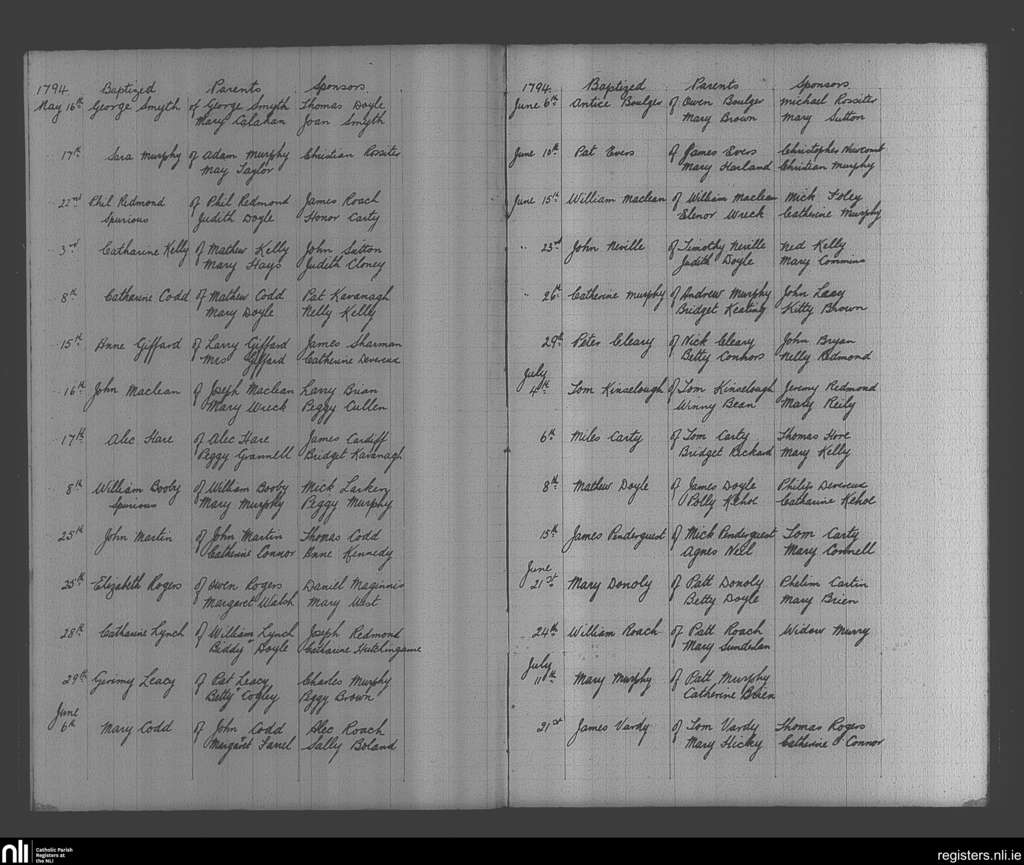 1794 Baptized Parents Sponsors
May 16th George Smyth of George Smyth Thomas Doyle
Mary Calahan Joan Smyth
17th Sara Murphy of Adam Murphy Christian Rossiter
May Taylor
22nd Phil Redmond of Phil Redmond James Roach
Spurious Judith Doyle Honor Carty
3rd Catharine Kelly of Mathew Kelly John Sutton
Mary Hays Judith Cloney
8th Catharine Codd of Mathew Codd Pat Kavanagh
Mary Doyle Nelly Kelly
15th Anne Giffard of Larry Giffard James Sharman
Mrs Giffard Catherine Devereux
16th John Maclean of Joseph Maclean Larry Brian
Mary Wreck Peggy Cullen
17th Alec Hare of Alec Hare James Cardiff
Peggy Grannell Bridget Kavanagh
8th William Booby of William Booby Mick Larken
Spurious Mary Murphy Peggy Murphy
25th John Martin of John Martin Thomas Codd
Catherine Connor Anne Kennedy
25th Elizabeth Rogers of Owen Rogers Daniel Maginnis
Margaret Walsh Mary West
28th Catharine Lynch of William Lynch Joseph Redmond
Biddy Doyle Catharine Hutchingame
29th Gerimy Leacy of Pat Leacy Charles Murphy
Betty Cogley Peggy Brown
June
6th Mary Codd of John Codd Alec Roach
Margaret Farrel Sally Boland
1794 Baptized Parents Sponsors
June 6th Antice Boulger of Owen Boulger Michael Rossiter
Mary Brown Mary Sutton
June 10th Pat Evers of James Evers Christopher
Mary Harland Christian Murphy
June 15th William Maclean of William Maclean Mick Foley
Elenor Wreck Catherine Murphy
" 23rd John Neville of Timothy Neville Ned Kelly
Judith Doyle Mary Commins
" 26th Catherine Murphy of Andrew Murphy John Lacy
Bridget Keating Kitty Brown
29th Peter Cleary of Nick Cleary John Bryan
Betty Connors Nelly Redmond
July
4th Tom Kinselough of Tom Kinselough Jeremy Redmond
Winny Bean Mary Reily
6th Miles Carty of Tom Carty Thomas Hore
Bridget Rickard Mary Kelly
8th Mathew Doyle of James Doyle Philip Devereux
Polly Kehoe Catharine Kehoe
15th James Penderguest of Mick Penderguest Tom Carty
Agnes Neil Mary Connell
June
21st Mary Donoly of Patt Donoly Phelim Cartin
Betty Doyle Mary Brien
24th William Roach of Patt Roach Widow Murry
Mary Sunderlan
July
11th Mary Murphy of Patt Murphy
Catherine Brien
21st James Vardy of Tom Vardy Thomas Rogers
Mary Hicky Catherine O'Connor
nli Catholic Parish
Registers at
the NLI
registers.nli.ie